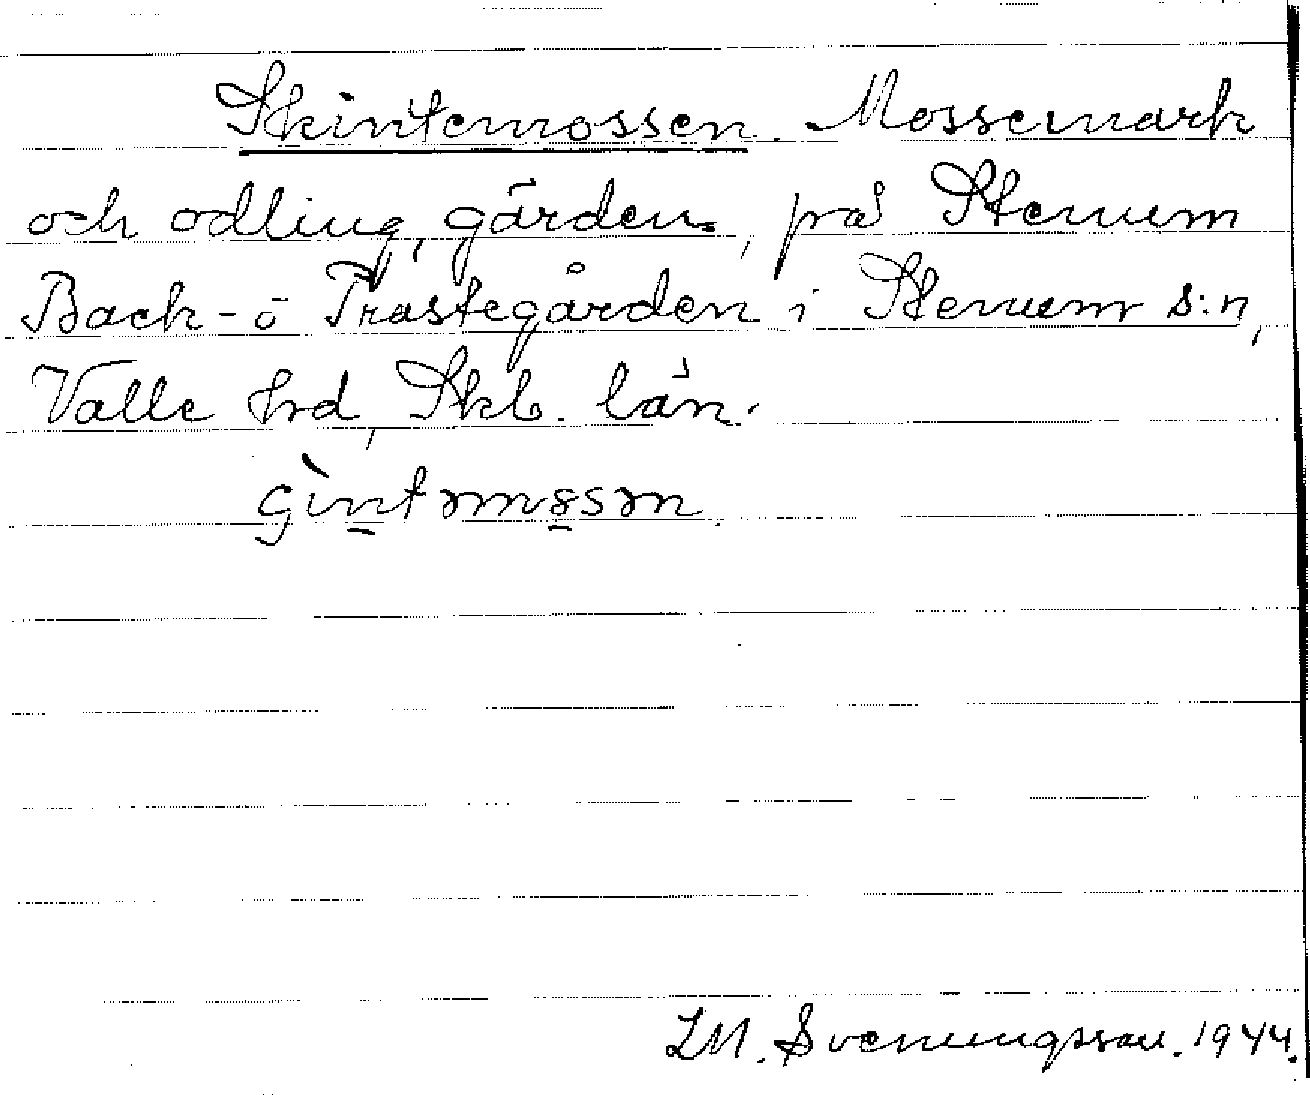 Skintemossen. Mossemark
och odling, gärden, på Stenum
Back- o Prästegården i Stenum s:n,
Valle hrd, Skb. län.
L M. Svenungsson. 1944.